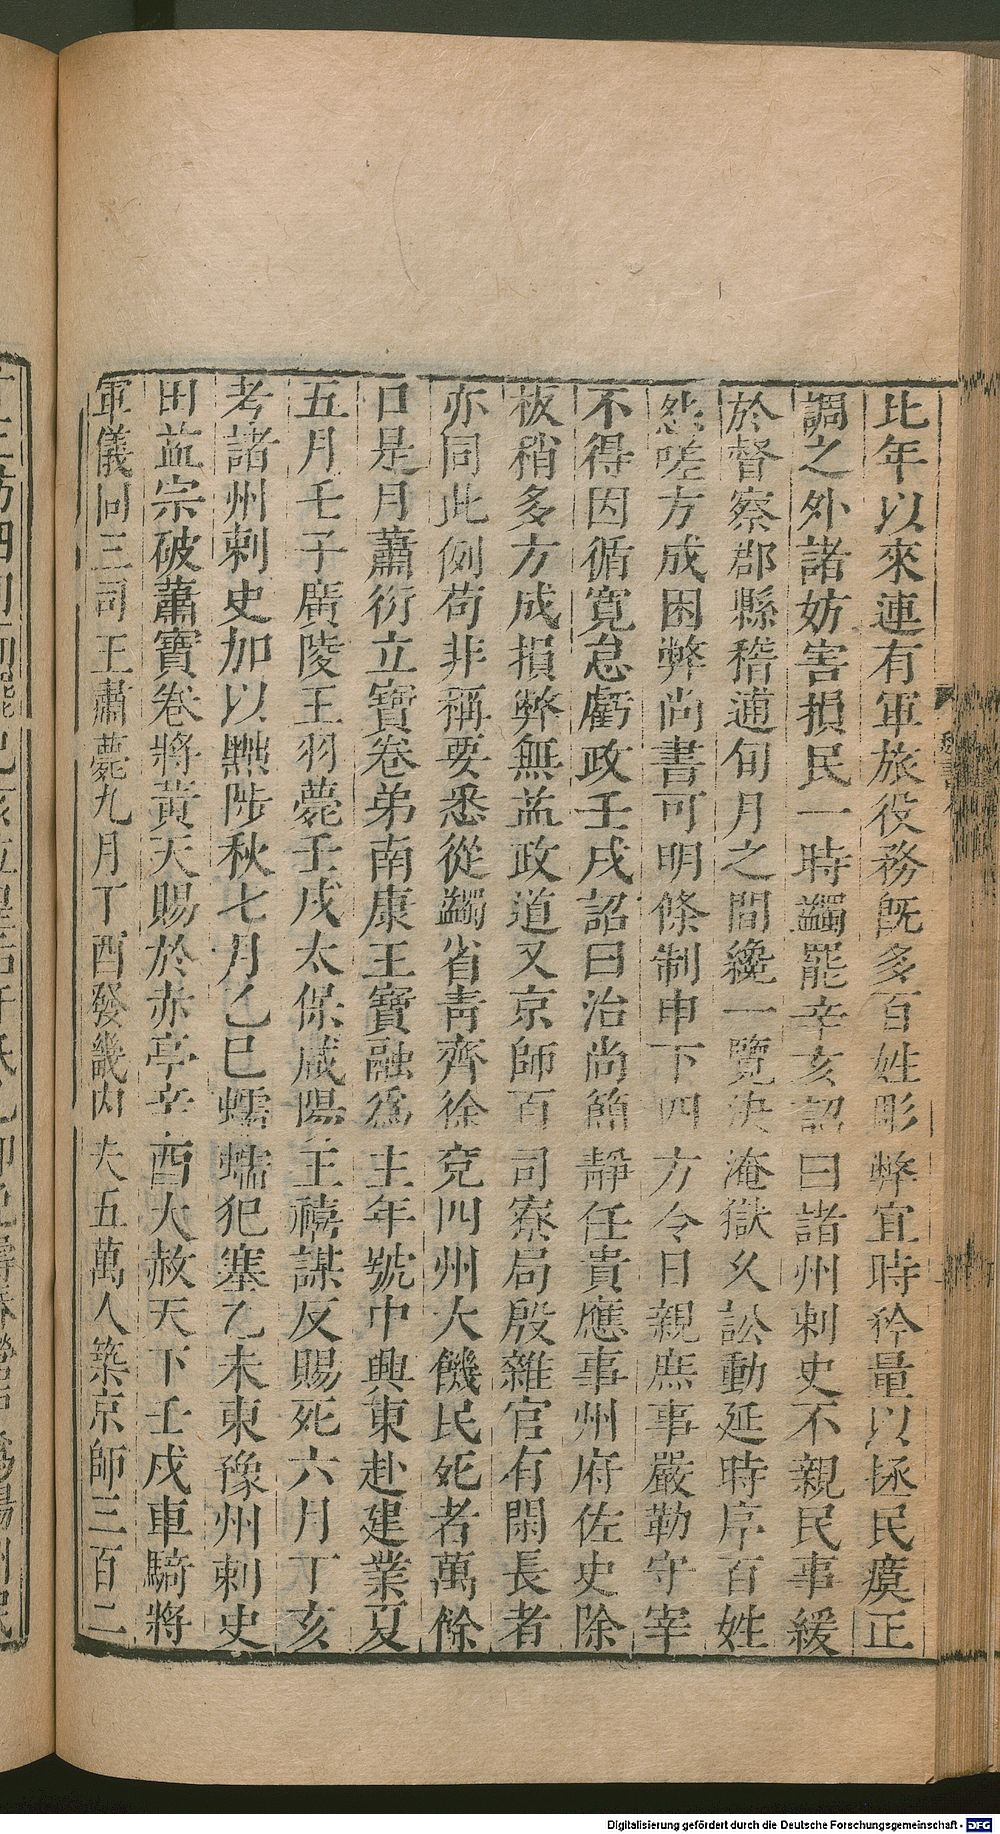 比年以來連有軍旅役務既多百姓彫弊宜時矜量以拯民瘼正
調之外諸妨害損民一時蠲罷辛亥詔曰諸州刺史不親民事緩
於督察郡縣稽逋旬月之間纔一覽決淹獄久訟動延時序百姓
怨嗟方成困弊尚書可明條制申下四方令日親庶事嚴勒守宰
不得因循寬怠虧政壬戌詔曰治尚簡靜任貴應事州府佐史除
板稍多方成損弊無益政道又京師百司寮局殷雜官有閑長者
亦同此例苟非稱要悉從蠲省青齊徐兗四州大饑民死者萬餘
口是月蕭衍立寶卷弟南康王寶融爲主年號中興東赴建業夏
五月壬子廣陵王羽薨壬戌太保咸陽王禧謀反賜死六月丁亥
考諸州刺史加以黜陟秋七月乙巳蠕蠕犯塞乙未東豫州刺史
田益宗破蕭寶卷將黃天賜於赤亭辛酉大赦天下壬戌車騎將
軍儀同三司王肅薨九月丁酉發畿內夫五萬人築京師三百二
Digitalisierung gefördert durch die Deutsche Forschungsgemeinschaft - DFG